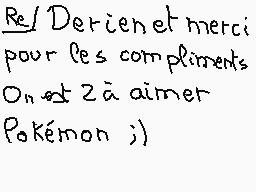 Re/ De rien et merci
pour les compliments
On est 2 à aimer
Pokémon ;)